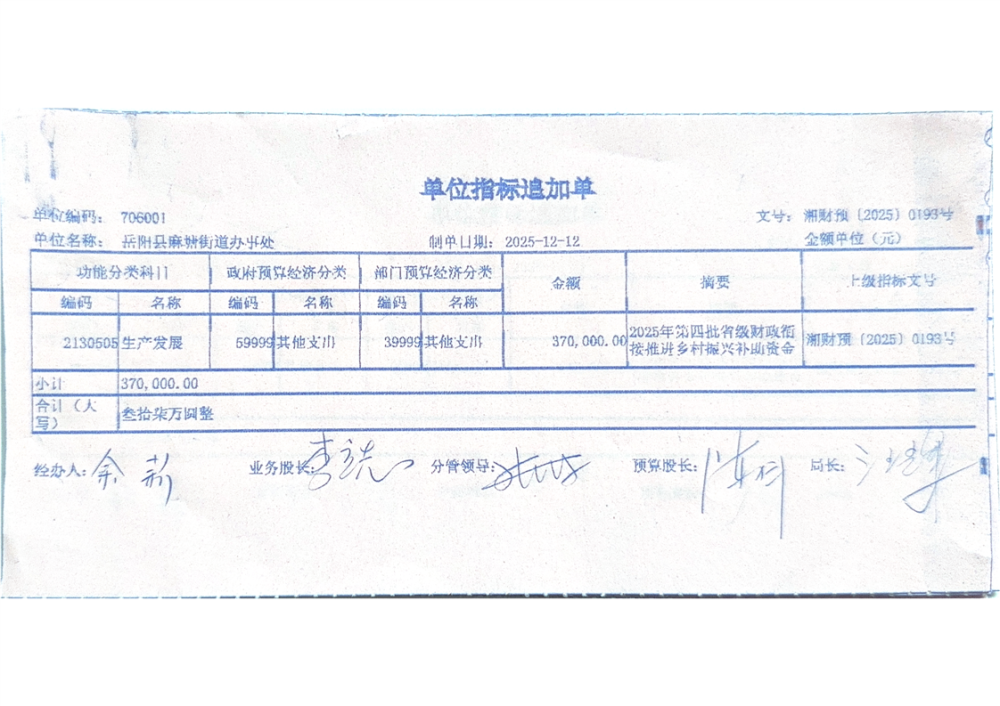 单位指标追加单
单位编码： 706001 文号： 湘财预〔2025〕0193号
单位名称： 岳阳县麻塘街道办事处 制单日期： 2025-12-12 金额单位（元）
功能分类科目 政府预算经济分类 部门预算经济分类 金额 摘要 上级指标文号
编码 名称 编码 名称 编码 名称
2130505 生产发展 59999 其他支出 39999 其他支出 370,000.00 2025年第四批省级财政衔 湘财预〔2025〕0193号
接推进乡村振兴补助资金
小计 370,000.00
合计（大 叁拾柒万圆整
写）
经办人： 余莉 业务股长： 分管领导： 预算股长： 局长：